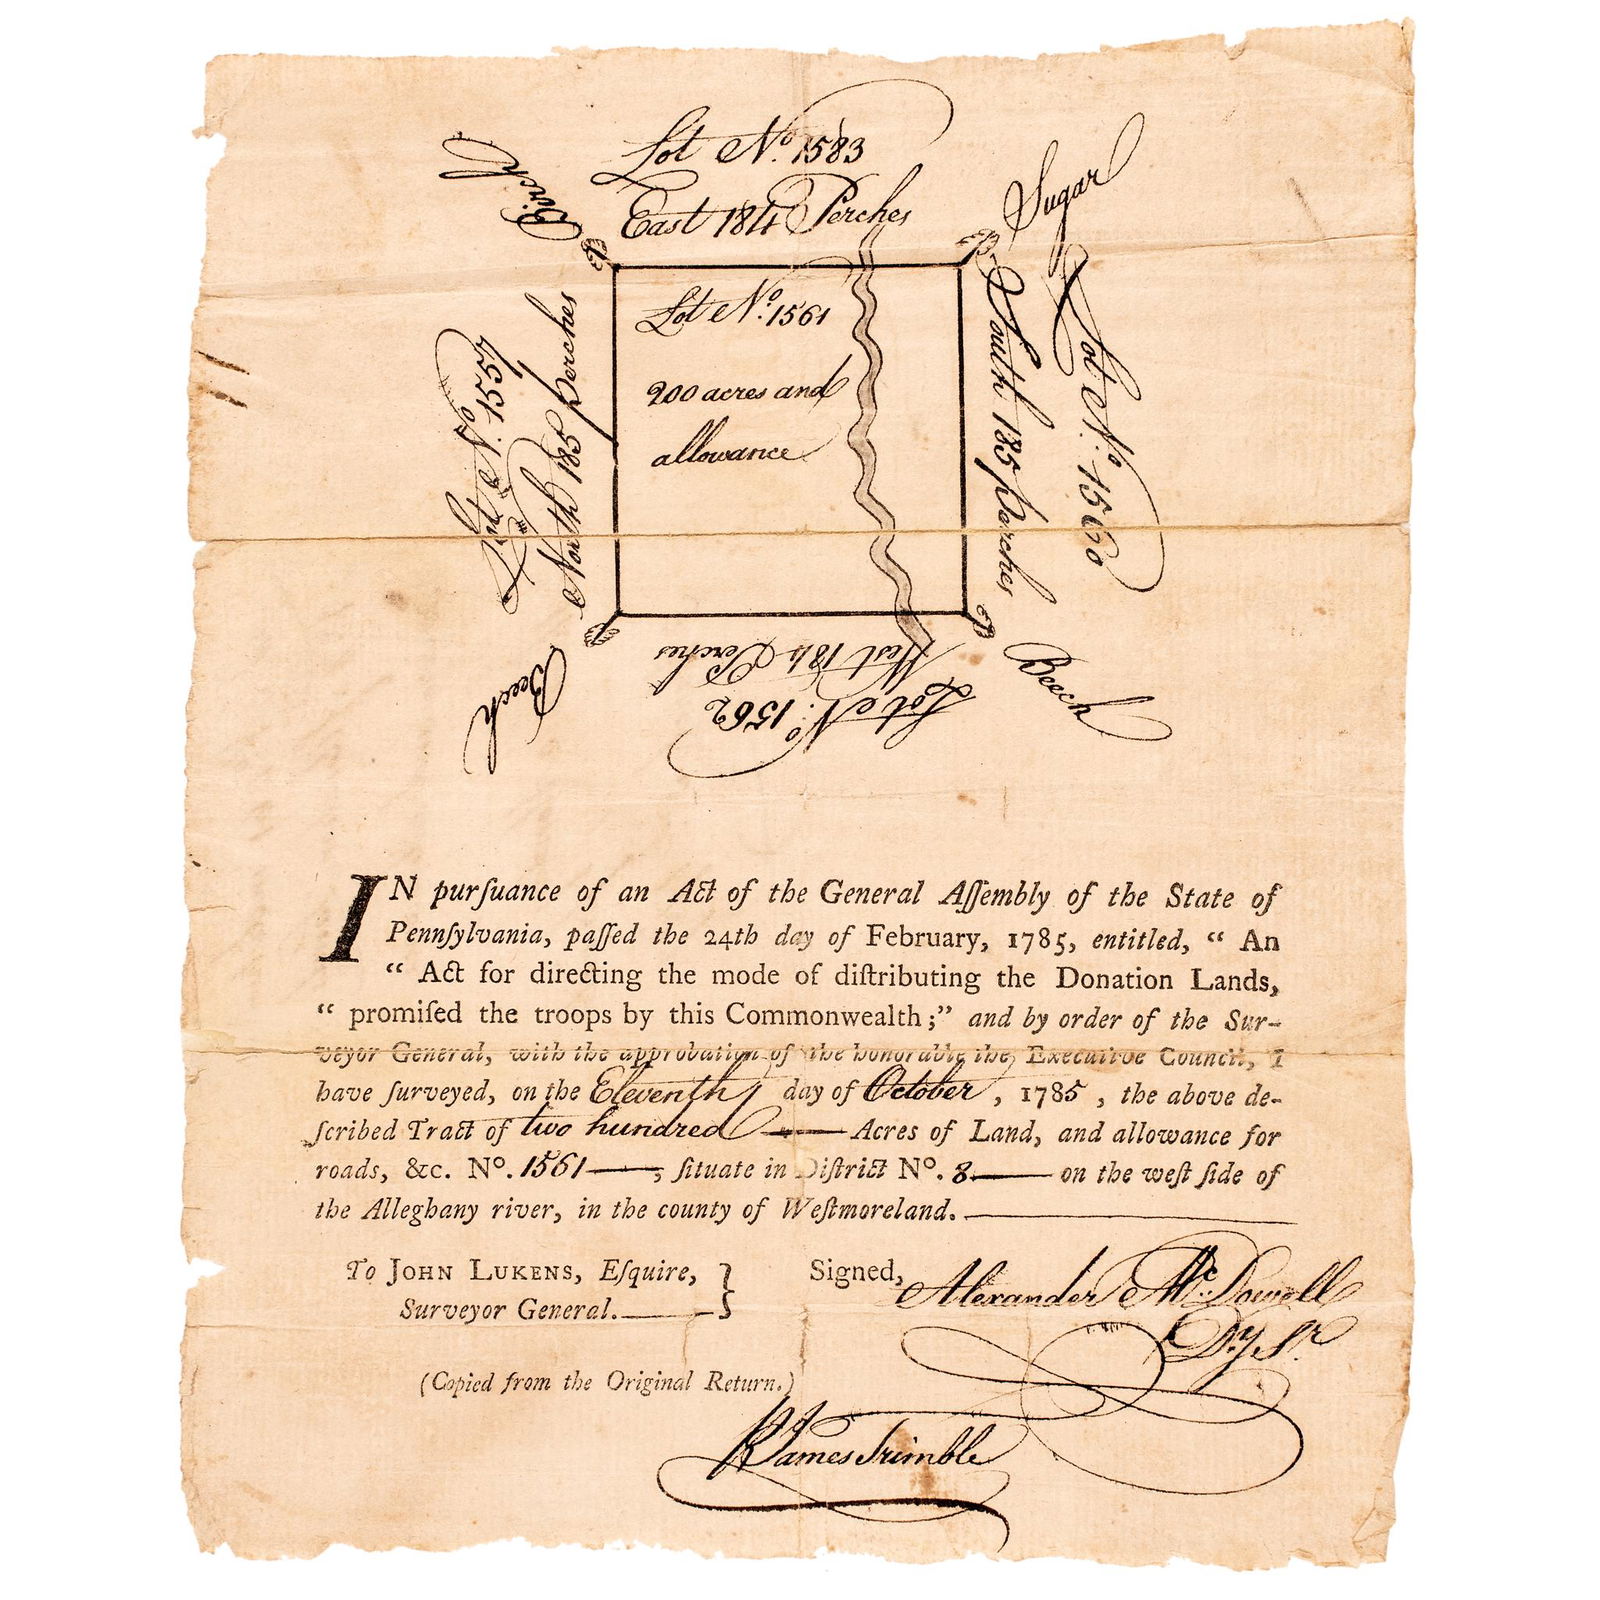 Lot No. 1583
East 184 Perches
Birch
Sugar
Lot No. 1561
200 acres and
allowance
Lot No.
North 185 perches
South 185 Perches
Lot No. 1560
West 184 Perches
Lot No. 1562
Beech
Beech
IN purſuance of an Act of the General Aſſembly of the State of
Pennſylvania, paſſed the 24th day of February, 1785, entitled, “ An
“ Act for directing the mode of diſtributing the Donation Lands,
“ promiſed the troops by this Commonwealth;” and by order of the Sur-
veyor General, with the approbation of the honorable the Executive Council, I
have ſurveyed, on the Eleventh day of October, 1785, the above de-
ſcribed Tract of two hundred — Acres of Land, and allowance for
roads, &c. No. 1561—, ſituate in Diſtrict No. 8— on the weſt ſide of
the Alleghany river, in the county of Weſtmoreland.—
To JOHN LUKENS, Eſquire, }
Surveyor General.—
Signed, Alexander McDowell
Dy. Sr.
(Copied from the Original Return.)
By James Trimble